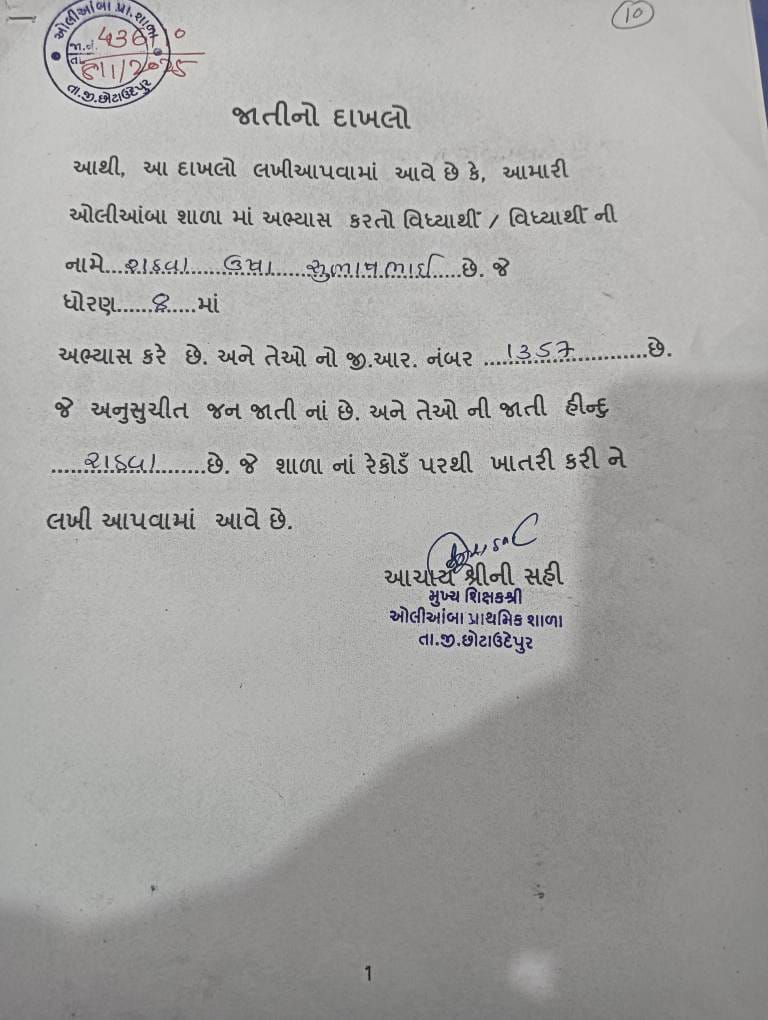 10
ઓલીઆંબા પ્રા.શાળા
જા.નં. 4367
તા. 8/1/2025
તા.જી.છોટાઉદેપુર
જાતીનો દાખલો
આથી, આ દાખલો લખીઆપવામાં આવે છે કે, આમારી
ઓલીઆંબા શાળા માં અભ્યાસ કરતો વિધ્યાર્થી / વિધ્યાર્થી ની
નામે...રાઠવા......ઉષા......સુભાષભાઈ.....છે. જે
ધોરણ......8.....માં
અભ્યાસ કરે છે. અને તેઓ નો જી.આર. નંબર ...1357............છે.
જે અનુસુચીત જન જાતી નાં છે. અને તેઓ ની જાતી હીન્દુ
.....રાઠવા........છે. જે શાળા નાં રેકોર્ડ પરથી ખાતરી કરી ને
લખી આપવામાં આવે છે.
આચાર્ય શ્રીની સહી
મુખ્ય શિક્ષકશ્રી
ઓલીઆંબા પ્રાથમિક શાળા
તા.જી.છોટાઉદેપુર
1